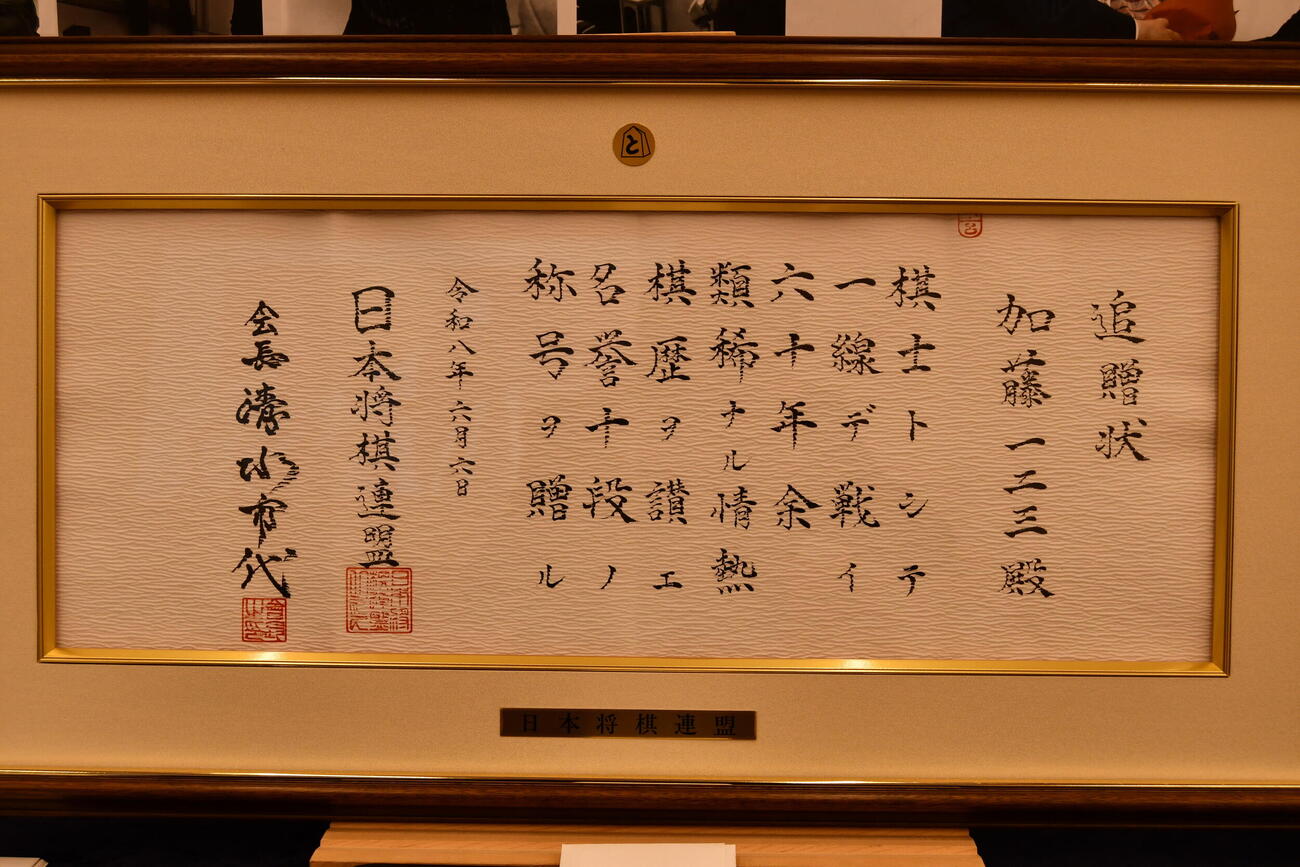 と
追贈状
加藤一二三殿
棋士トシテ
一線デ戦イ
六十年余
類稀ナル情熱
棋歴ヲ讃エ
名誉十段ノ
称号ヲ贈ル
令和八年六月六日
日本将棋連盟
会長清水市代
日本将棋連盟